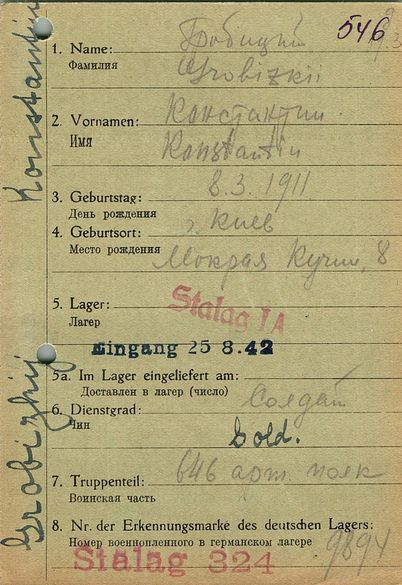 546
1. Name: Гробицкий
Фамилия Grobizkii
2. Vornamen: Константин
Имя Konstantin
3. Geburtstag: 8.3.1911
День рождения
4. Geburtsort: г. Киев
Место рождения Мокрая Кучми, 8
5. Lager: Stalag IA
Лагер
Eingang 25 8.42
5a. Im Lager eingeliefert am:
Доставлен в лагер (число)
6. Dienstgrad: Солдат
Чин Sold.
7. Truppenteil: 646 арт. полк
Воинская часть
8. Nr. der Erkennungsmarke des deutschen Lagers:
Номер военнопленного в германском лагере 9894
Stalag 324
Grobizkij Konstantin